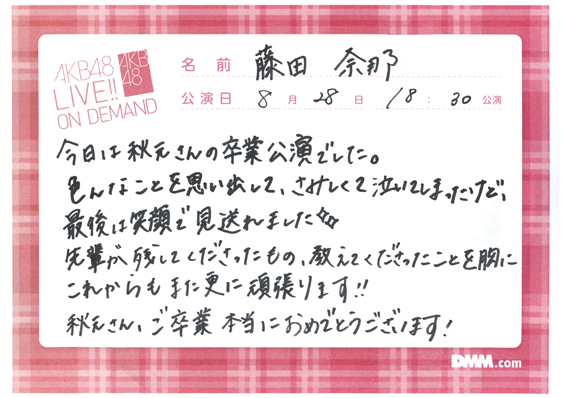 AKB48
LIVE!!
ON DEMAND
AKB
48
名 前 藤田 奈那
公演日 8 月 28 日 18 : 30 公演
今日は秋元さんの卒業公演でした。
色んなことを思い出して、さみしくて泣いてしまったけど、
最後は笑顔で見送れました
先輩が残してくださったもの、教えてくださったことを胸に
これからもまた更に頑張ります!!
秋元さん、ご卒業 本当におめでとうございます!
DMM.com